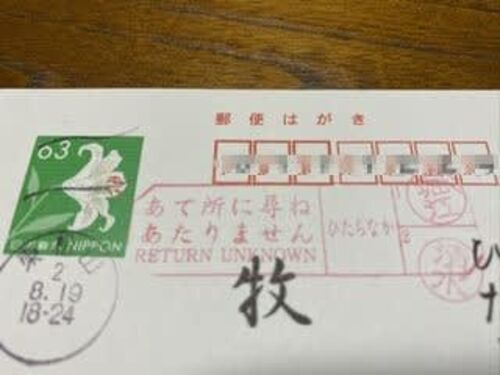 郵便はがき
63
NIPPON
2
8.19
18-24
あて所に尋ね
あたりません
RETURN UNKNOWN
ひたちなか
牧
ひ